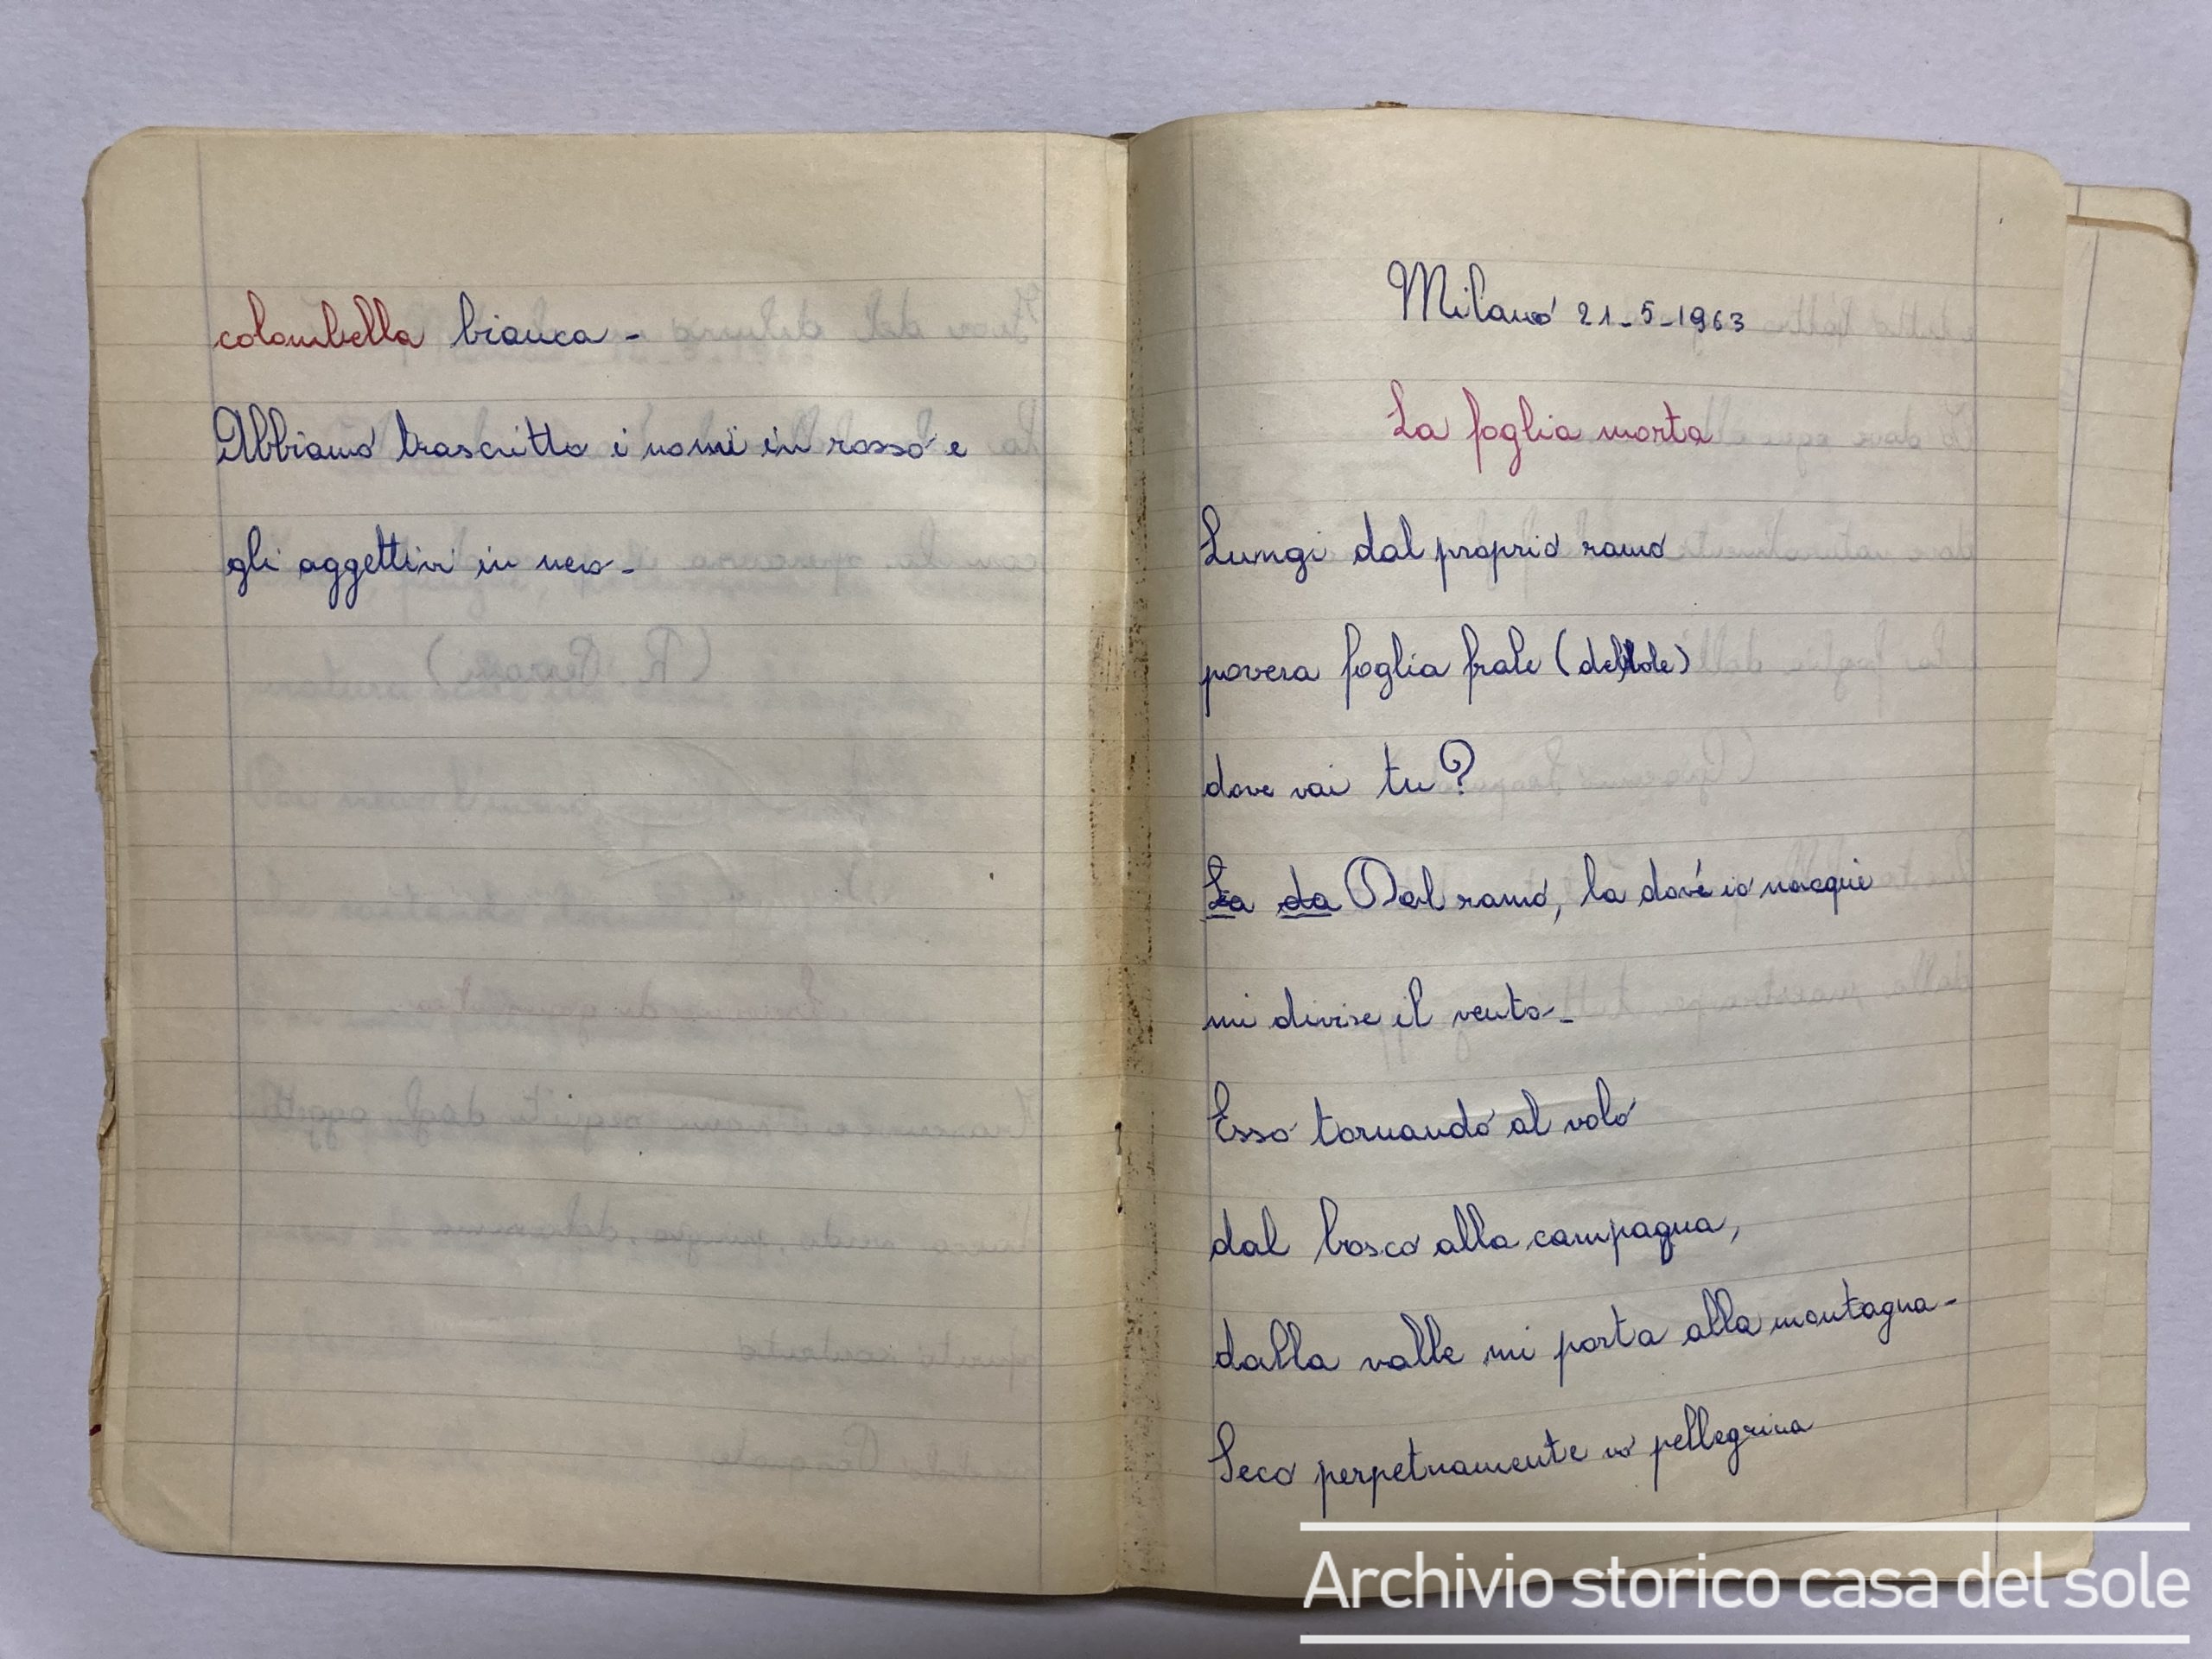 colombella bianca -
Abbiamo trascritto i nomi in rosso e
gli aggettivi in nero -
Milano 21-5-1963
La foglia morta
Lungi dal proprio ramo
povera foglia frale (debole)
dove vai tu?
La da Dal ramo, la dove io nacqui
mi divise il vento -
Esso tornando al volo
dal bosco alla campagna,
dalla valle mi porta alla montagna -
Seco perpetuamente vo pellegrina
Archivio storico casa del sole